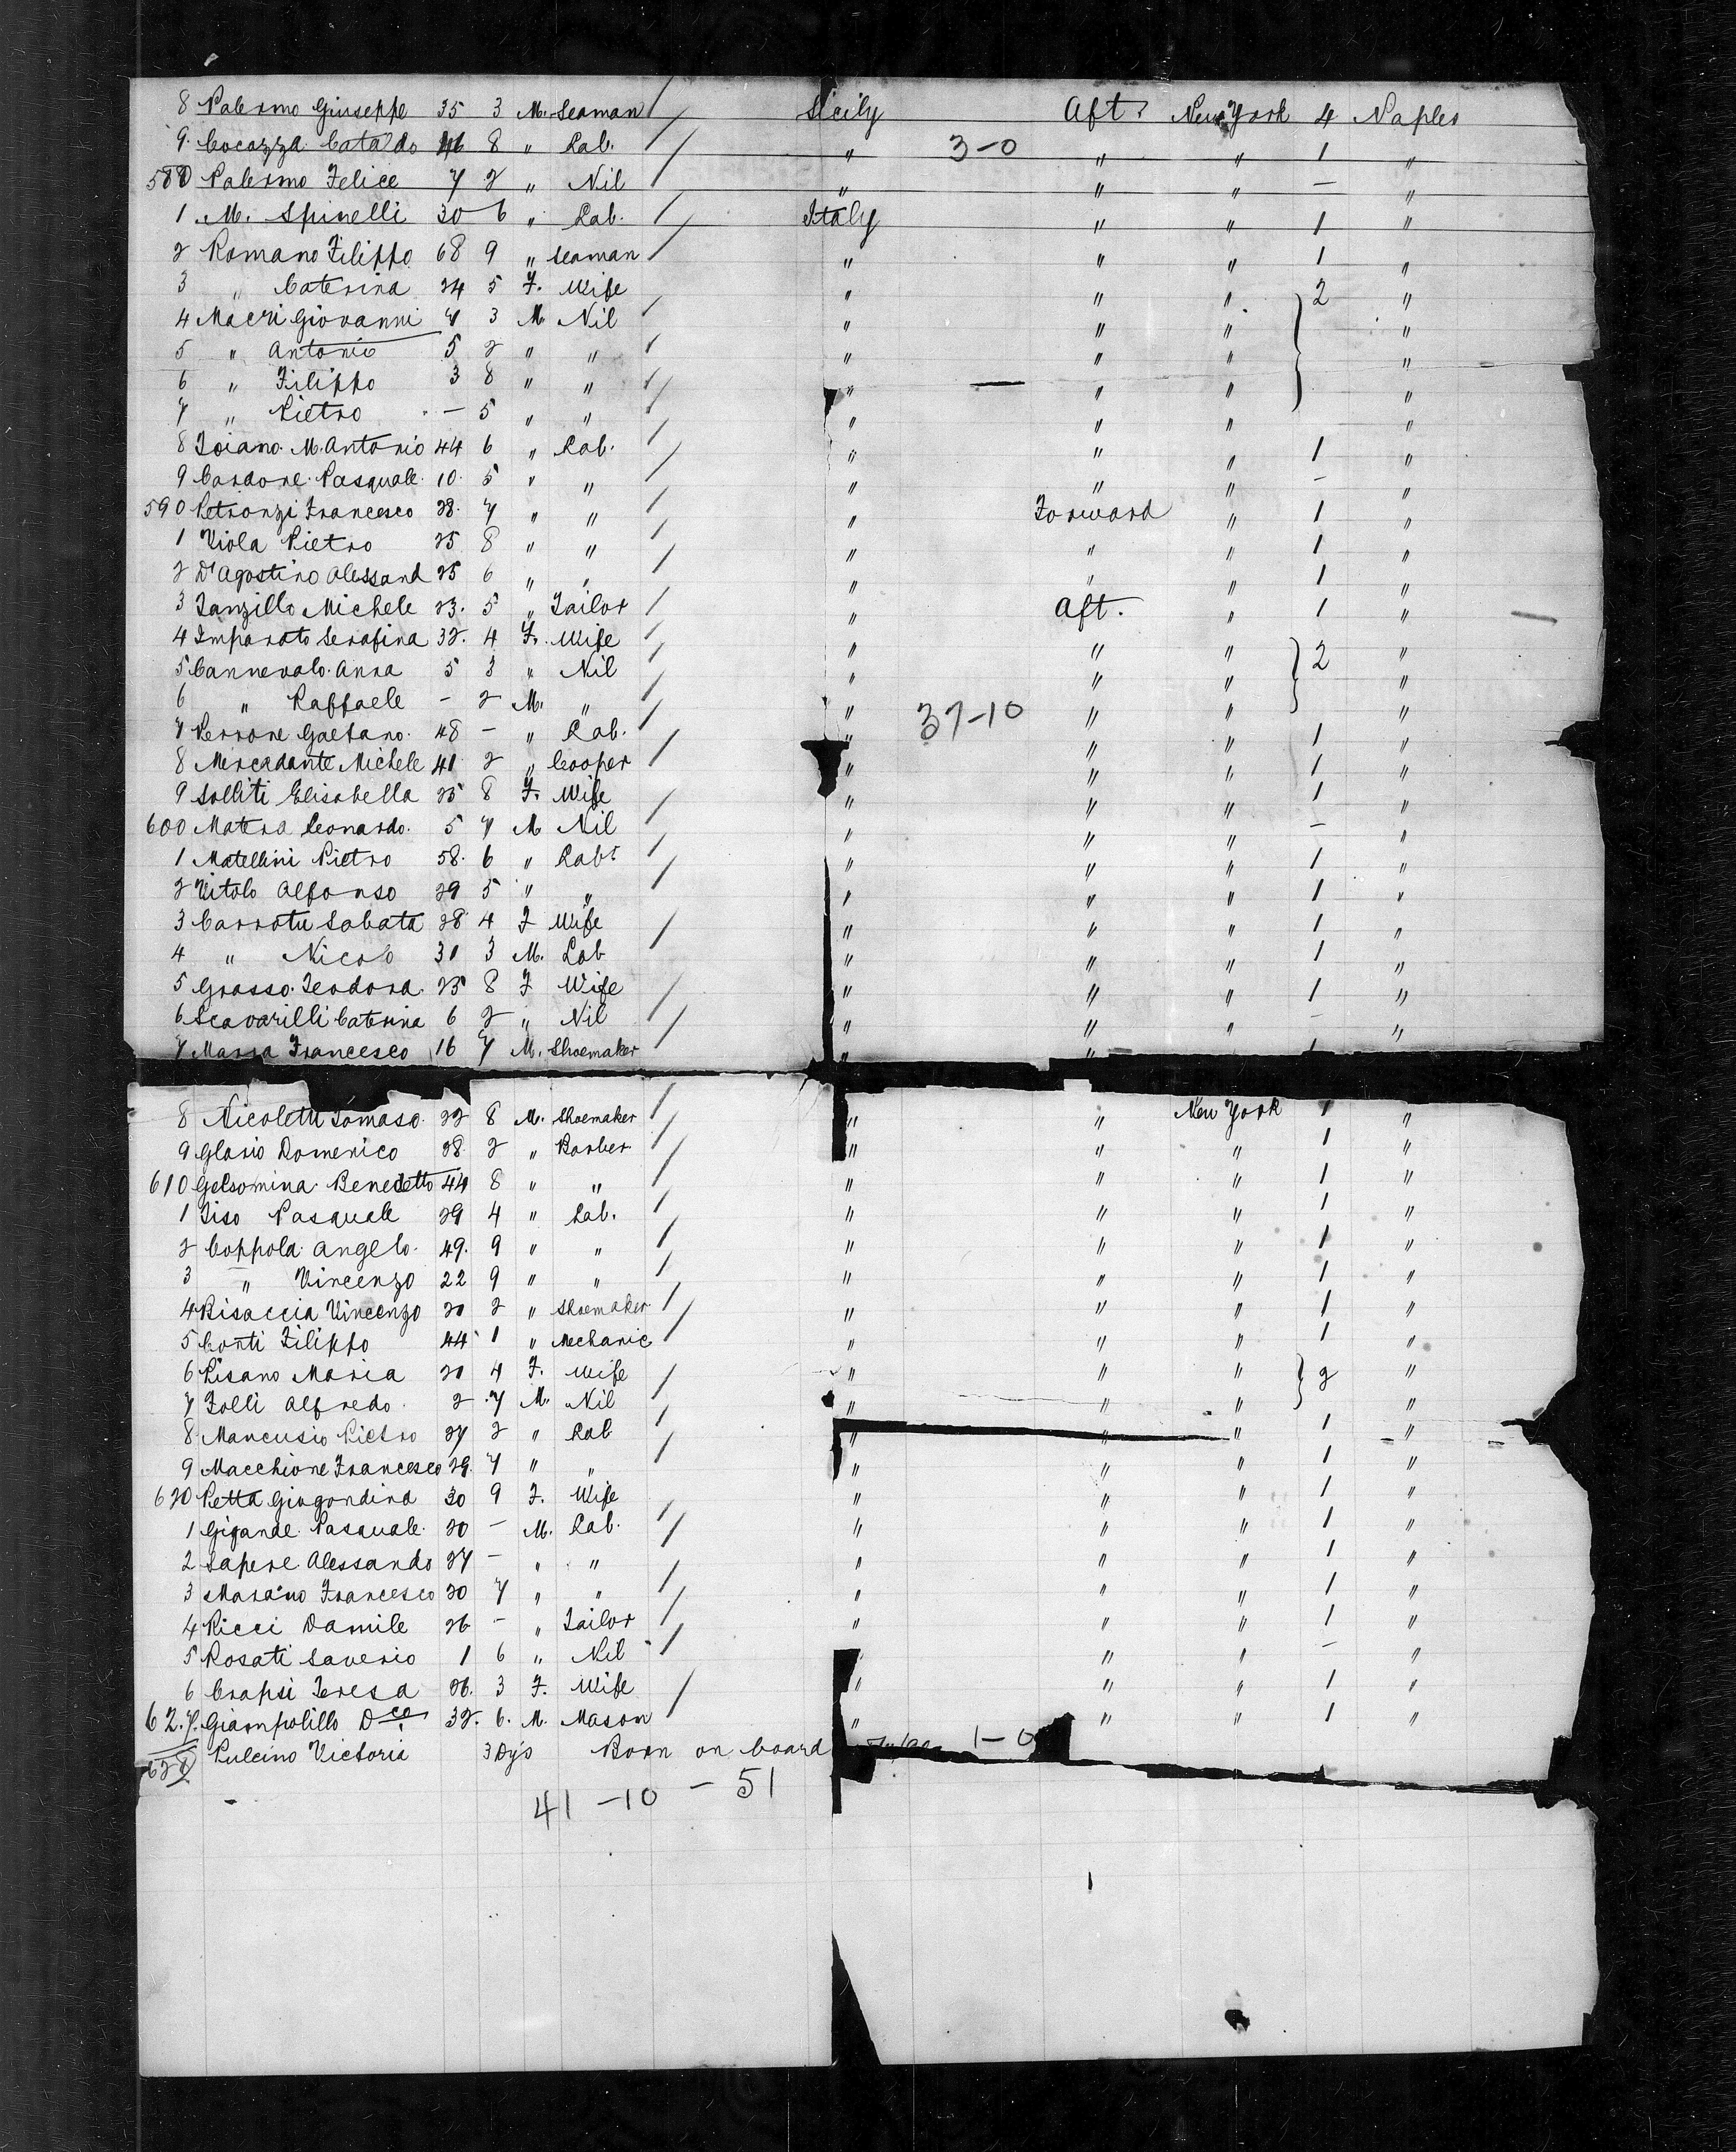 8 Palermo Giuseppe 35 3 M. Seaman / Sicily Aft. New York 4 Naples
9. Cocozza Cataldo 46 8 " Lab. / " 3-0 " " 1 "
580 Palermo Felice 7 2 " Nil / " " " — "
1 M. Spinelli 30 6 " Lab. / Italy " " 1 "
2 Romano Filippo 68 9 " Seaman / " " " 1 "
3 " Caterina 24 5 F. Wife " " " 2 "
4 Macri Giovanni 7 3 M Nil / " " " "
5 " Antonio 5 2 " " / " " " "
6 " Filippo 3 8 " " / " — " " "
7 " Pietro — 5 " " / " " " "
8 Toiano M. Antonio 44 6 " Lab. / " " " 1 "
9 Cardone Pasquale 10 5 " " / " " " - "
590 Petronzi Francesco 28 7 " " / " Forward " 1 "
1 Viola Pietro 25 8 " " / " " " 1 "
2 D'Agostino Alessand 25 6 " " / " " " 1 "
3 Tanzillo Michele 23. 5 " Tailor / " Aft. " 1 "
4 Imparato Serafina 32. 4 F. Wife / " " " 2 "
5 Cannevalo Anna 5 3 " Nil / " " " "
6 " Raffaele - 2 M. " / " " " "
7 Perrone Gaetano 48 - " Lab. / " 37-10 " " 1 "
8 Mercadante Michele 41 2 " Cooper / " " " 1 "
9 Solliti Elisabella 25 8 F. Wife " " " 1 "
600 Matera Leonardo. 5 7 M Nil / " " " - "
1 Matellini Pietro 58. 6 " Labr / " " " 1 "
2 Vitolo Alfonso 29 5 " " / " " " 1 "
3 Carrotu Sabata 28 4 F Wife " " " 1 "
4 " Nicolo 31 3 M. Lab / " " " 1 "
5 Grasso Teodora 25 8 F Wife " " " 1 "
6 Scavarilli Caterina 6 2 " Nil / " " " - "
7 Massa Francesco 16 7 M. Shoemaker / " "
8 Nicoletti Tomaso 22 8 M. Shoemaker / " " New York 1 "
9 Glorio Domenico 28 2 " Barber / " " " 1 "
610 Gelsomina Benedetto 44 8 " " / " " " 1 "
1 Tiso Pasquale 29 4 " Lab. / " " " 1 "
2 Coppola Angelo 49. 9 " " / " " " 1 "
3 " Vincenzo 22 9 " " / " " " 1 "
4 Bisaccia Vincenzo 20 2 " Shoemaker / " " " 1 "
5 Conti Filippo 44 1 " Mechanic / " " " 1 "
6 Pisano Maria 20 4 F. Wife " " " 2 "
7 Folli Alfredo 2 7 M. Nil / " " " "
8 Mancusio Pietro 27 2 " Lab / " " " 1 "
9 Macchione Francesco 29. 7 " " / " " " 1 "
620 Petta Giogondina 30 9 F. Wife " " " 1 "
1 Gigande Pasquale 20 - M. Lab. / " " " 1 "
2 Sapere Alessando 27 - " " / " " " 1 "
3 Marano Francesco 20 7 " " / " " " 1 "
4 Ricci Damile 26 - " Tailor / " " " 1 "
5 Rosati Saverio 1 6 " Nil / " " " - "
6 Crapsi Teresa 26. 3 F. Wife " " " 1 "
62.7. Giampolillo Dco. 32. 6. M. Mason / " " " 1 "
628 Pulcino Victoria 3 Dys Born on board 1-0
41-10 - 51